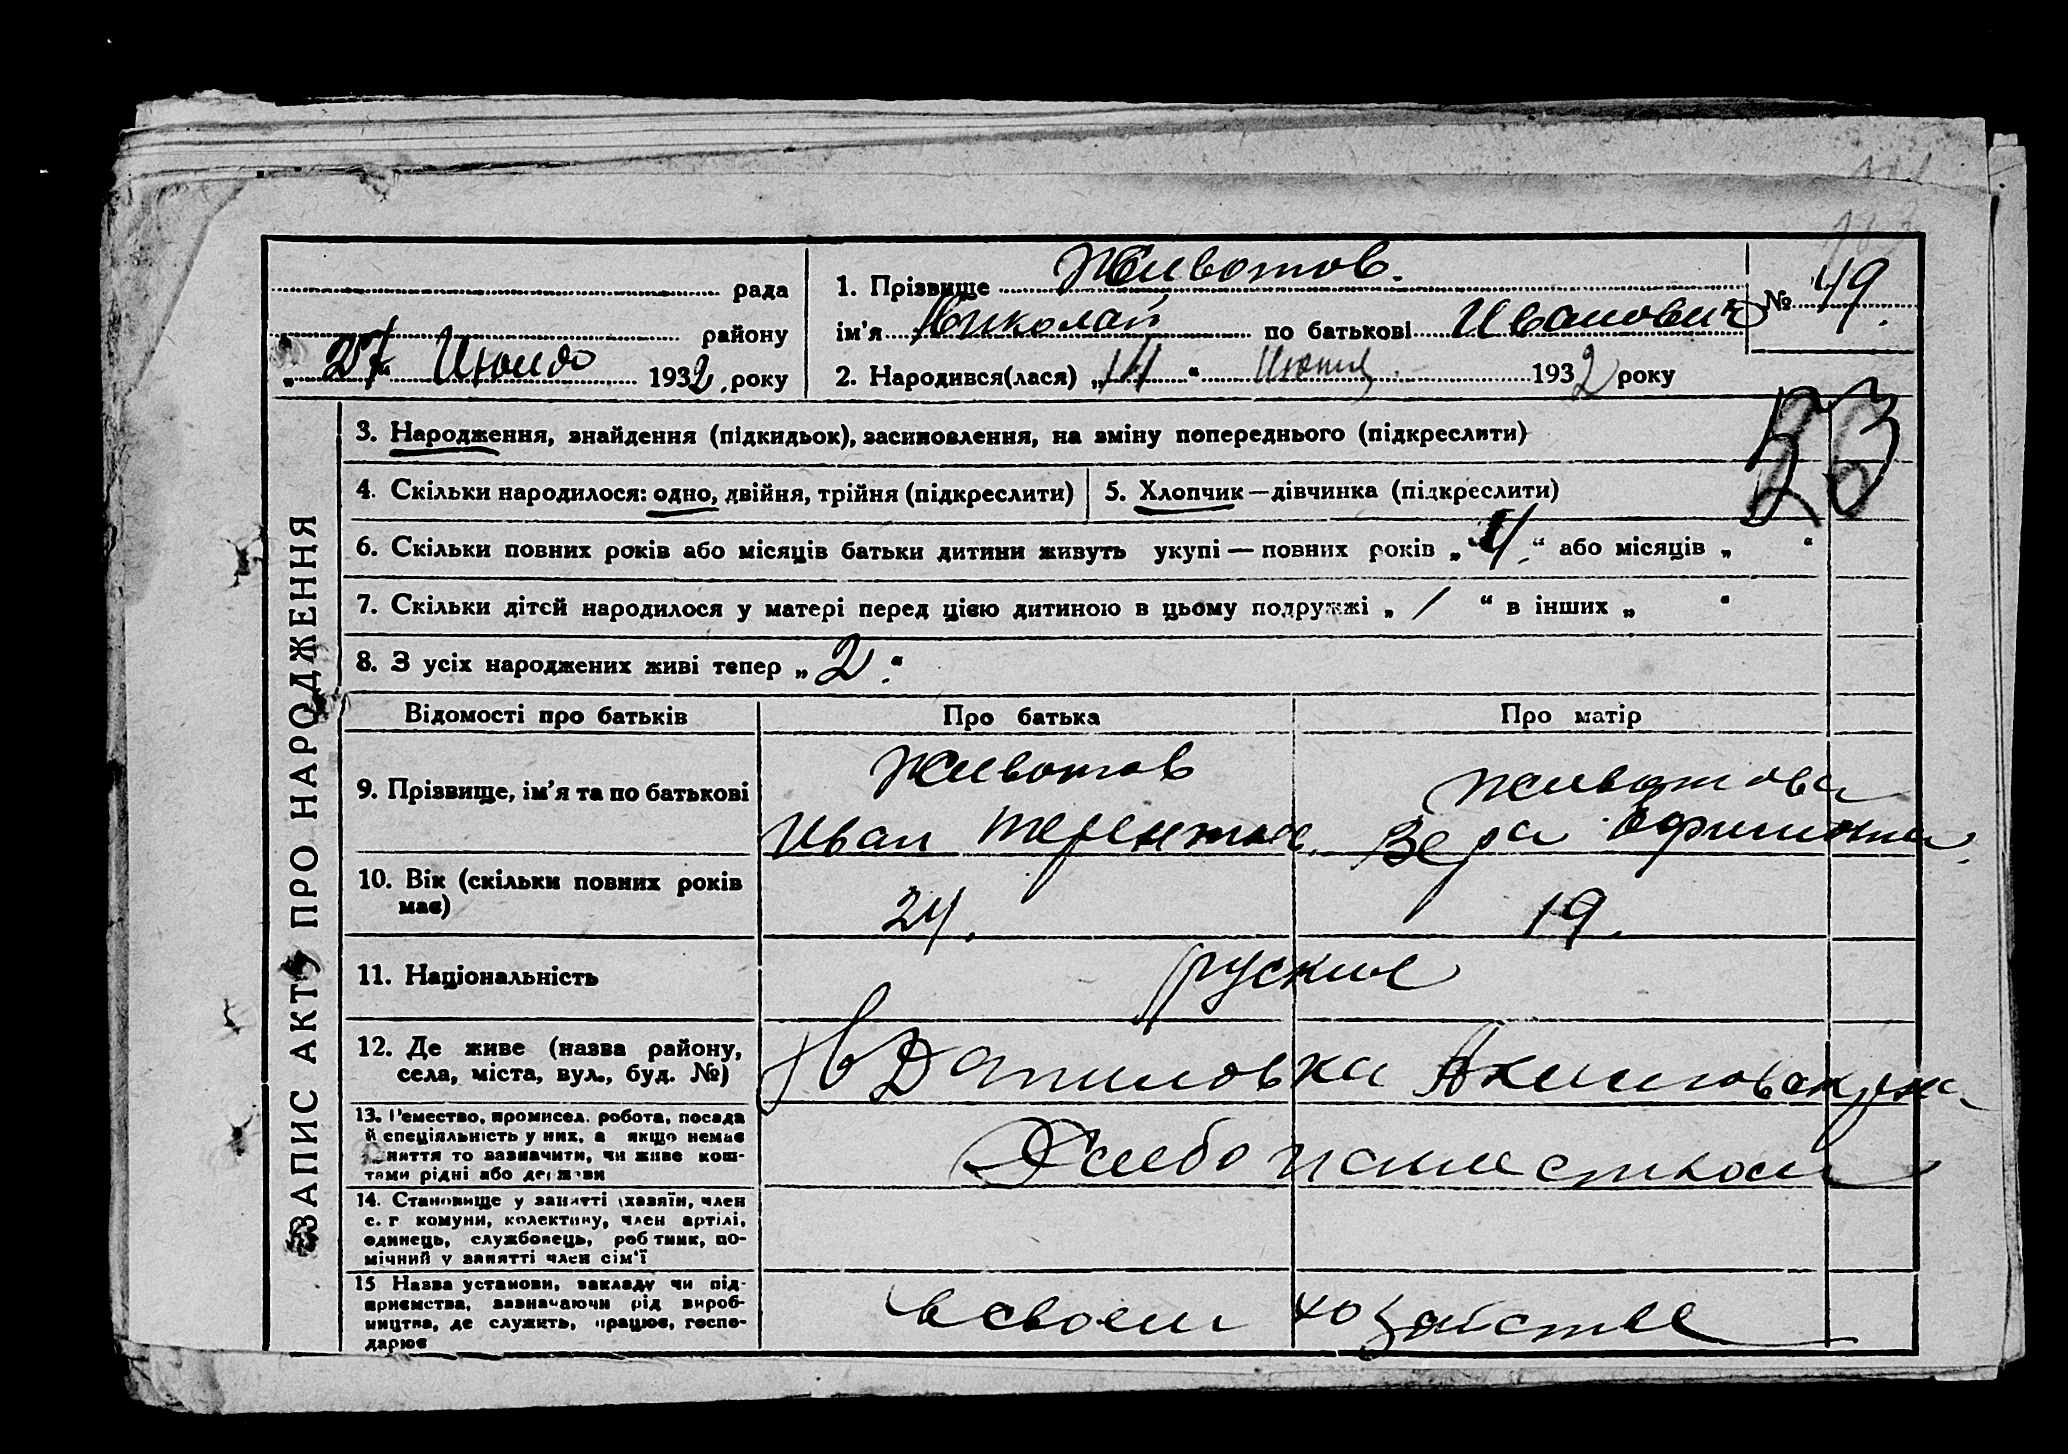 Животов.
рада
1. Прізвище
№ 49.
району
ім'я Николай по батькові Иванович
„27“ Июля 1932. року
2. Народився(лася) „14“ Июня 1932 року
3. Народження, знайдення (підкидьок), засиновлення, на зміну попереднього (підкреслити)
4. Скільки народилося: одно, двійня, трійня (підкреслити)
5. Хлопчик—дівчинка (підкреслити)
6. Скільки повних років або місяців батьки дитини живуть укупі — повних років „4.“ або місяців „ “
7. Скільки дітей народилося у матері перед цією дитиною в цьому подружжі „ 1 “ в інших „ “
8. З усіх народжених живі тепер „2.“
ЗАПИС АКТУ ПРО НАРОДЖЕННЯ
Відомості про батьків
Про батька
Про матір
9. Прізвище, ім'я та по батькові
Животов
Иван
Животова
Вера
10. Вік (скільки повних років
має)
24.
19.
11. Національність
руские
12. Де живе (назва району,
села, міста, вул., буд. №)
Даниловка
13. Ремество, промисел, робота, посада
й спеціяльність у них, а якщо немає
заняття то зазначити, чи живе кош-
тами рідні або держави
14. Становище у занятті (хазяїн, член
с.-г комуни, колективу, член артілі,
одинець, службовець, робітник, по-
мічний у занятті член сім'ї
15 Назва установи, закладу чи під-
приємства, зазначаючи рід вироб-
ництва, де служить, працює, госпо-
дарює
в своем хозайстве